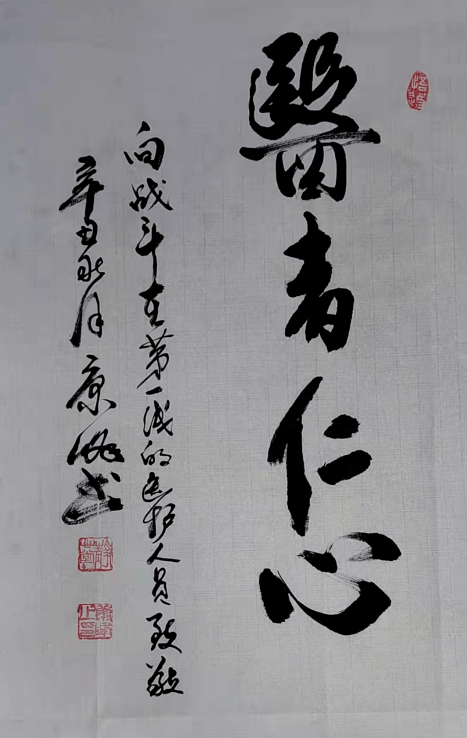 醫者仁心
向战斗在第一线的医护人员致敬
辛丑秋月